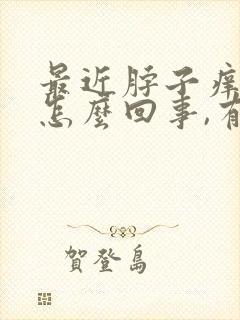 最近脖子痒
怎麼回事,有
賀登島